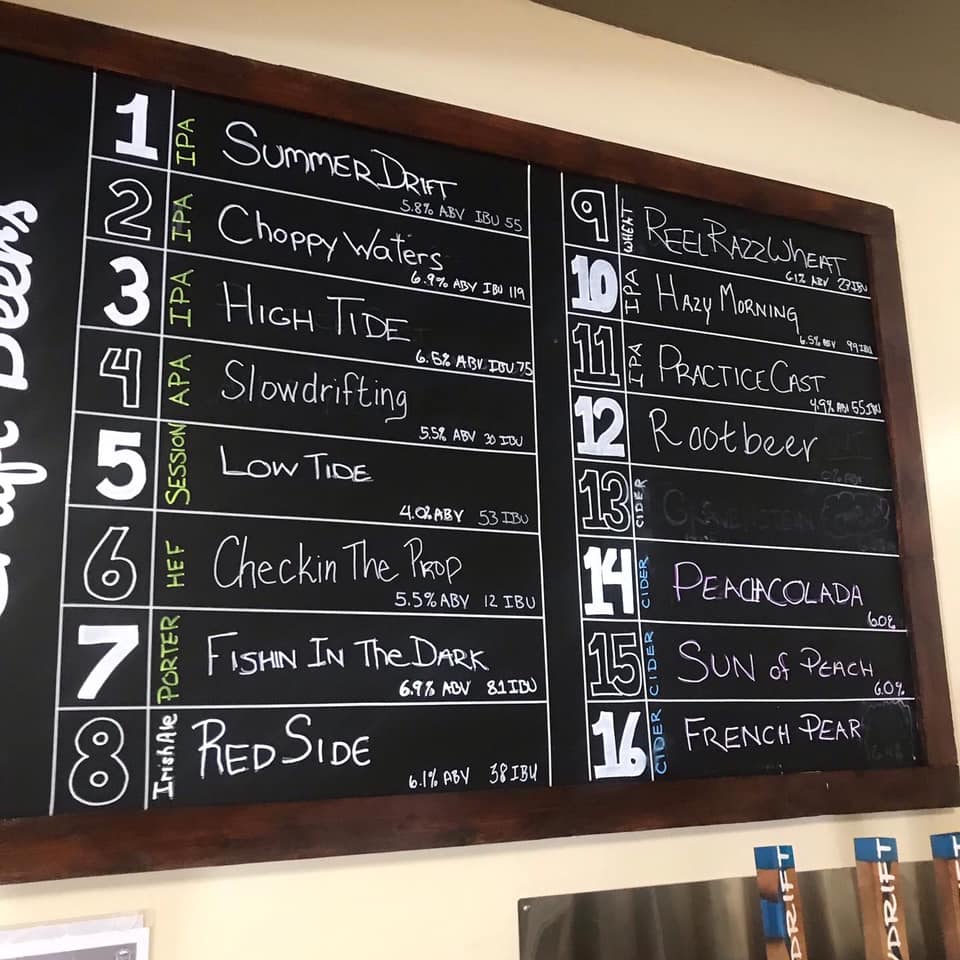 Craft Beers
1 IPA SUMMER DRIFT
5.8% ABV IBU 55
2 IPA Choppy Waters
6.9% ABV IBU 119
3 IPA HIGH TIDE
6.5% ABV IBU 75
4 APA Slowdrifting
5.5% ABV 30 IBU
5 SESSION LOW TIDE
4.0% ABV 53 IBU
6 HEF Checkin The Prop
5.5% ABV 12 IBU
7 PORTER FISHIN IN The DARK
6.9% ABV 81 IBU
8 Irish Ale RED SIDE
6.1% ABV 38 IBU
9 WHEAT REEL RAZZ WHEAT
27 IBU
10 IPA HAZY MORNING
6.5% ABV 99 IBU
11 IPA PRACTICE CAST
4.9% ABV 55 IBU
12 Rootbeer
13 CIDER
14 CIDER PEACHCOLADA
6.0%
15 CIDER SUN of PEACH
6.0%
16 CIDER FRENCH PEAR
DRIFT
YDRIFT